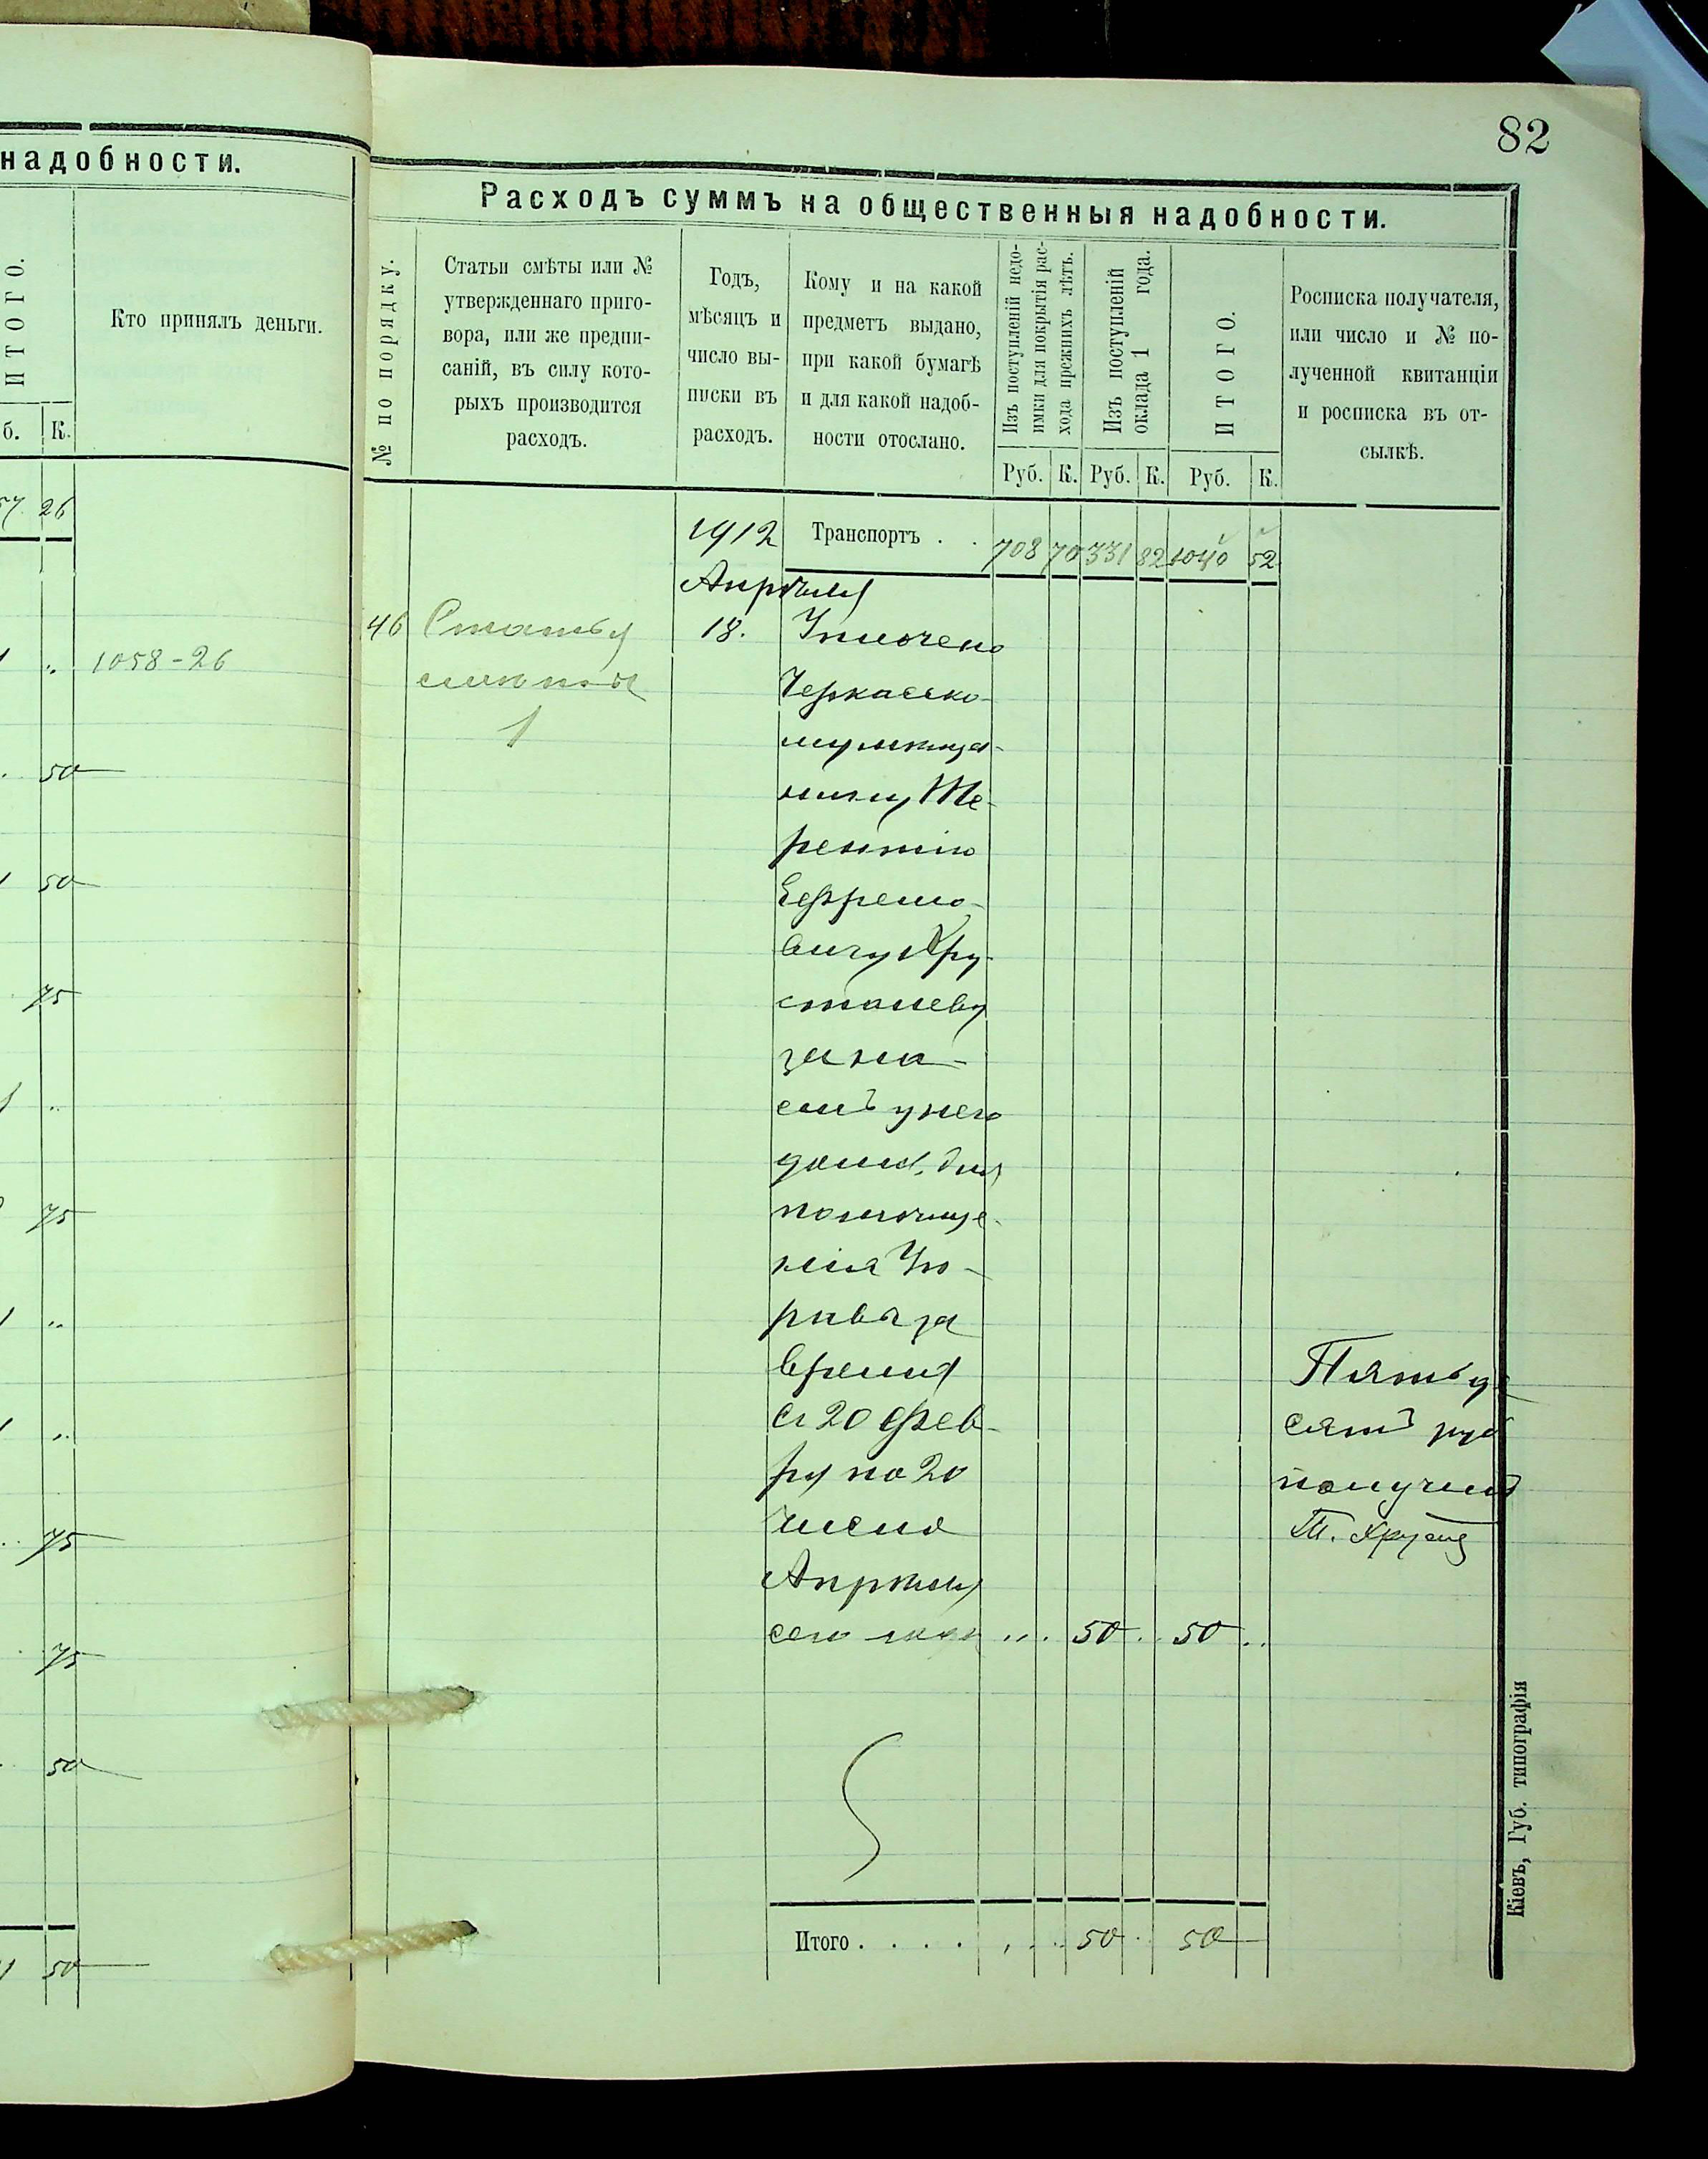 надобности.
ИТОГО.
Кто принялъ деньги.
б. К.
57. 26
1058-26
50
50
75
75
75
75
50
50
82
Расходъ суммъ на общественныя надобности.
№ по порядку.
Статьи смѣты или №
утвержденнаго приго-
вора, или же предпи-
саній, въ силу кото-
рыхъ производится
расходъ.
Годъ,
мѣсяцъ и
число вы-
писки въ
расходъ.
Кому и на какой
предметъ выдано,
при какой бумагѣ
и для какой надоб-
ности отослано.
Изъ поступленій недо-
имки для покрытія рас-
хода прежнихъ лѣтъ.
Изъ поступленій
оклада 1 года.
ИТОГО.
Росписка получателя,
или число и № по-
лученной квитанціи
и росписка въ от-
сылкѣ.
Руб. К. Руб. К. Руб. К.
1912 Транспортъ . . 708 70 331 82 1040 52
Апрѣля
46 Статья 18. Уплочено
смѣты Черкасско-
1 му мѣща-
нину Те-
рентію
Ефремо-
вичу Хру-
сталеву
за на-
емъ у него
дома, для
помѣще-
нія Уп-
равы за
время
съ 20 фев-
ря по 20
число
Апрѣля
сего года ... 50 .. 50 ..
Пятьде
сятъ руб
получилъ
Т. Хруст
Итого . . . . . 50 .. 50
Кіевъ, Губ. типографія